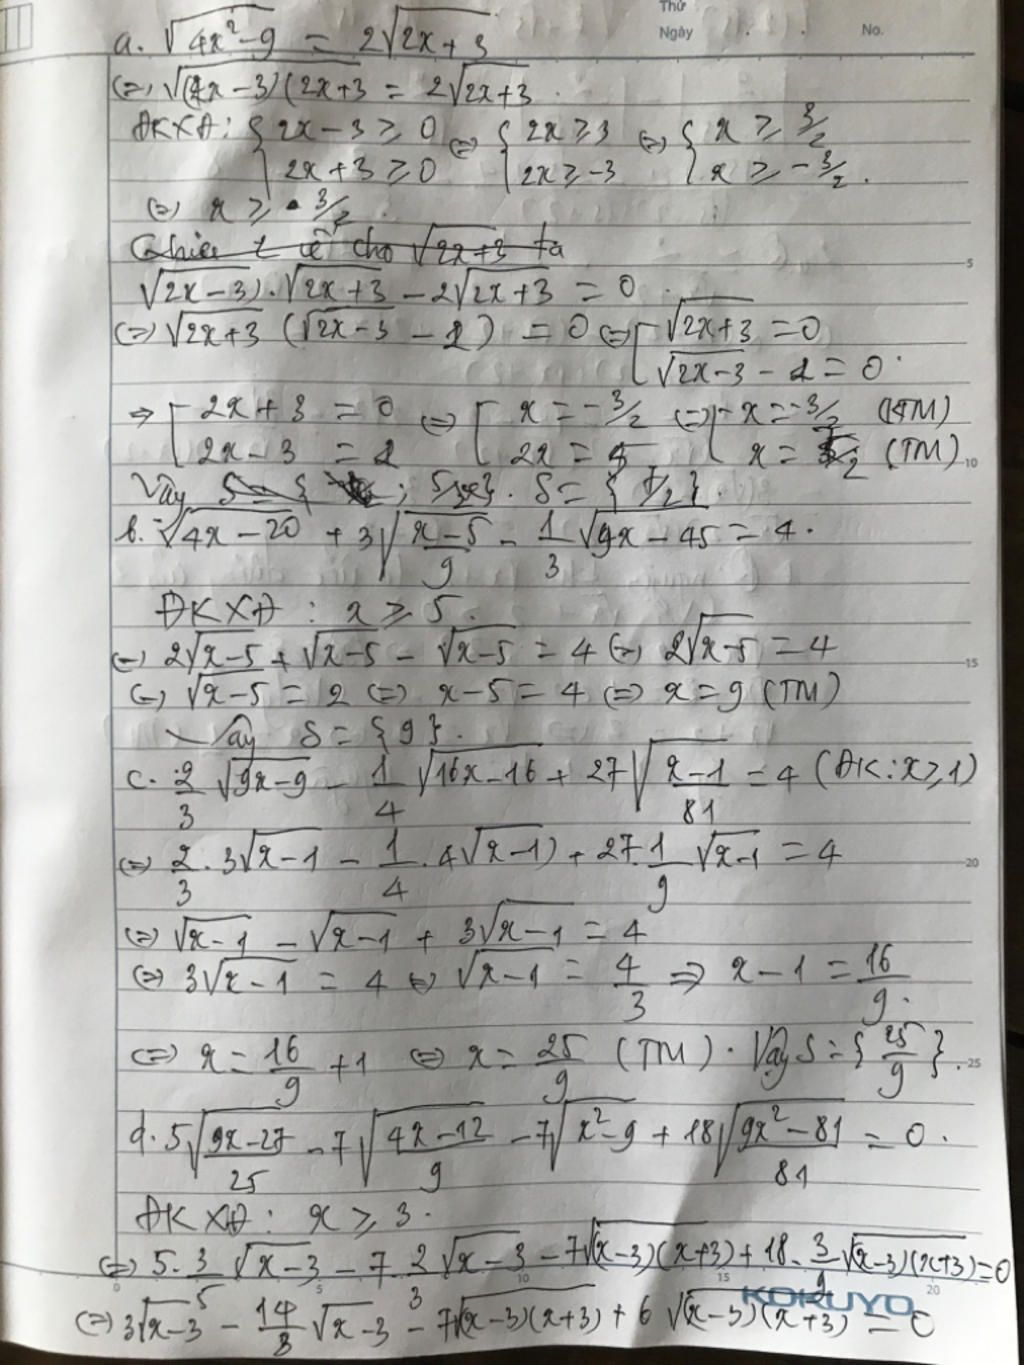 Thứ
Ngày . . No.
a. √(4x²-9) = 2√(2x+3)
(=) √((2x-3)(2x+3) = 2√(2x+3) .
ĐKXĐ: { 2x-3 ≥ 0 (=) { 2x ≥ 3 (=) { x ≥ 3/2
2x+3 ≥ 0 2x ≥ -3 x ≥ -3/2 .
(=) x ≥ 3/2 .
cho √(2x+3) ta
√(2x-3) . √(2x+3) - 2√(2x+3) = 0 .
(=) √(2x+3) (√(2x-3) - 2) = 0 (=) [ √(2x+3) = 0
√(2x-3) - 2 = 0 .
=> [ 2x+3 = 0 (=) [ x = -3/2 (=) [ x = -3/2 (KTM)
2x-3 = 2 2x = 5 x = 5/2 (TM)
Vậy S = { ; 5/2 } . S = { /2 } .
b. √(4x-20) + 3√((x-5)/9) - 1/3 √(9x-45) = 4 .
ĐKXĐ : x ≥ 5 .
(=) 2√(x-5) + √(x-5) - √(x-5) = 4 (=) 2√(x-5) = 4
(=) √(x-5) = 2 (=) x-5 = 4 (=) x = 9 (TM)
Vậy S = { 9 } .
c. 2/3 √(9x-9) - 1/4 √(16x-16) + 27√((x-1)/81) = 4 (ĐK: x ≥ 1)
(=) 2/3 . 3√(x-1) - 1/4 . 4√(x-1) + 27.1/9 √(x-1) = 4
(=) √(x-1) - √(x-1) + 3√(x-1) = 4
(=) 3√(x-1) = 4 (=) √(x-1) = 4/3 => x-1 = 16/9 .
(=) x = 16/9 + 1 (=) x = 25/9 (TM) . Vậy S = { 25/9 } .
d. 5√((9x-27)/25) - 7√((4x-12)/9) - 7√(x²-9) + 18√((9x²-81)/81) = 0 .
ĐKXĐ: x ≥ 3 .
(=) 5.3/5 √(x-3) - 7 2/3 √(x-3) - 7√((x-3)(x+3)) + 18.3/9 √((x-3)(x+3)) = 0
KOKUYO
(=) 3√(x-3) - 14/3 √(x-3) - 7√((x-3)(x+3)) + 6√((x-3)(x+3)) = 0